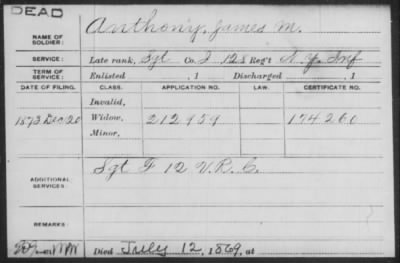 DEAD
NAME OF SOLDIER: Anthony, James M.
SERVICE: Late rank, Sgt Co. I 128 Reg't N.Y. Inf
TERM OF SERVICE: Enlisted , 1 Discharged , 1
DATE OF FILING. CLASS. APPLICATION NO. LAW. CERTIFICATE NO.
Invalid,
1873 Dec 20 Widow, 212959 174260
Minor,
ADDITIONAL SERVICES: Sgt F 12 V.R.C.
REMARKS:
Died July 12, 1869, at